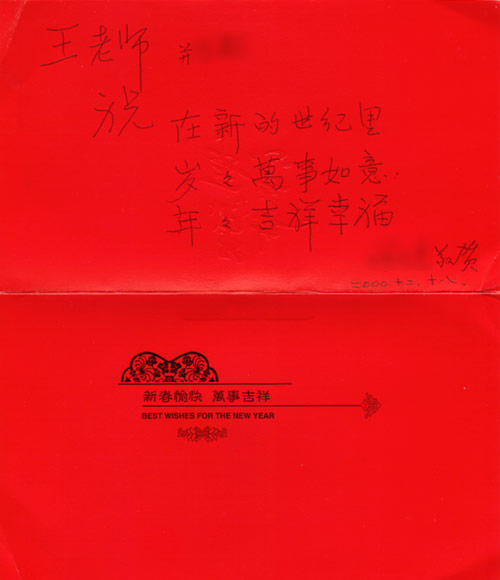 王老师 并
祝 在新的世纪里
岁々萬事如意
年々吉祥幸福
敬贺
二000 十二.十八.
新春愉快 萬事吉祥
BEST WISHES FOR THE NEW YEAR